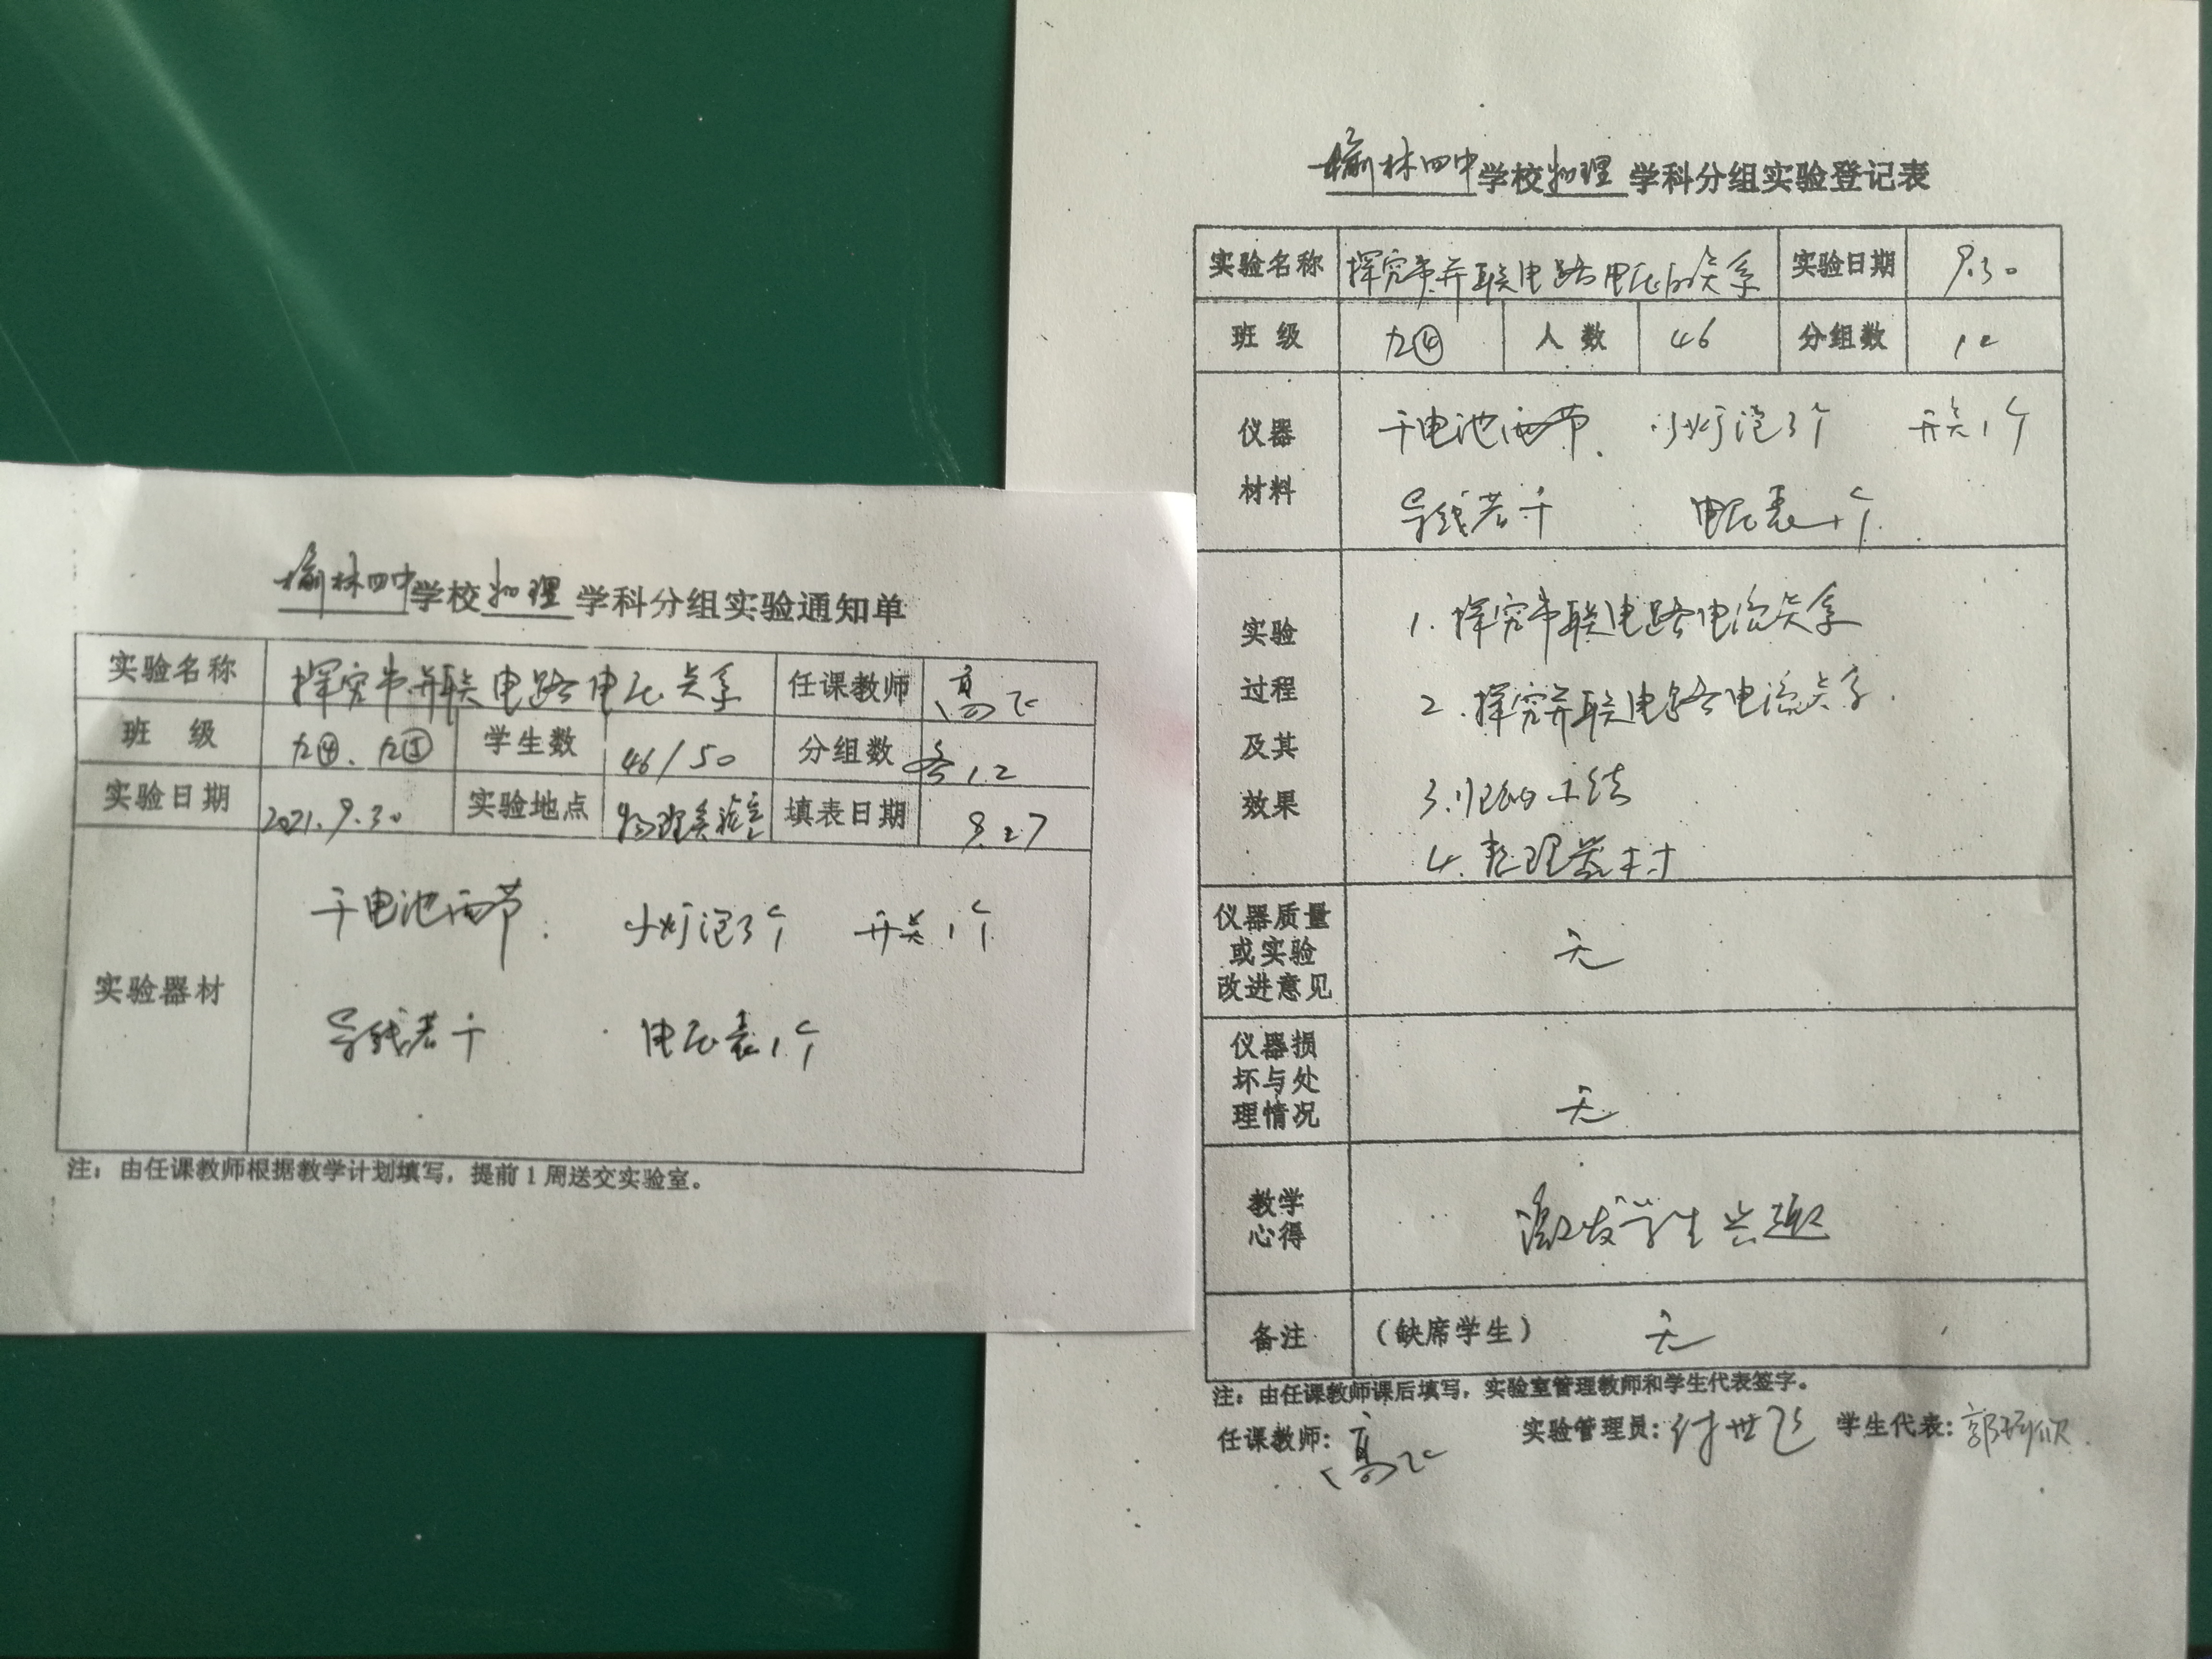 榆林四中学校物理学科分组实验通知单
实验名称 探究串并联电路电压关系 任课教师 高飞
班 级 九④、九⑤ 学生数 46/50 分组数 各12
实验日期 2021.9.30 实验地点 物理实验室 填表日期 9.27
实验器材
干电池两节. 小灯泡3个 开关1个
导线若干 电压表1个
注：由任课教师根据教学计划填写，提前1周送交实验室。
榆林四中学校物理学科分组实验登记表
实验名称 探究串并联电路电压的关系 实验日期 9.30
班 级 九④ 人 数 46 分组数 12
仪器
材料
干电池两节. 小灯泡3个 开关1个
导线若干 电压表1个.
实验
过程
及其
效果
1. 探究串联电路电流关系
2. 探究并联电路电流关系.
3. 归纳小结
4. 整理器材
仪器质量
或实验
改进意见
无
仪器损
坏与处
理情况
无
教学
心得
激发学生兴趣
备注 （缺席学生） 无
注：由任课教师课后填写，实验室管理教师和学生代表签字。
任课教师：高飞 实验管理员：付世飞 学生代表：郭